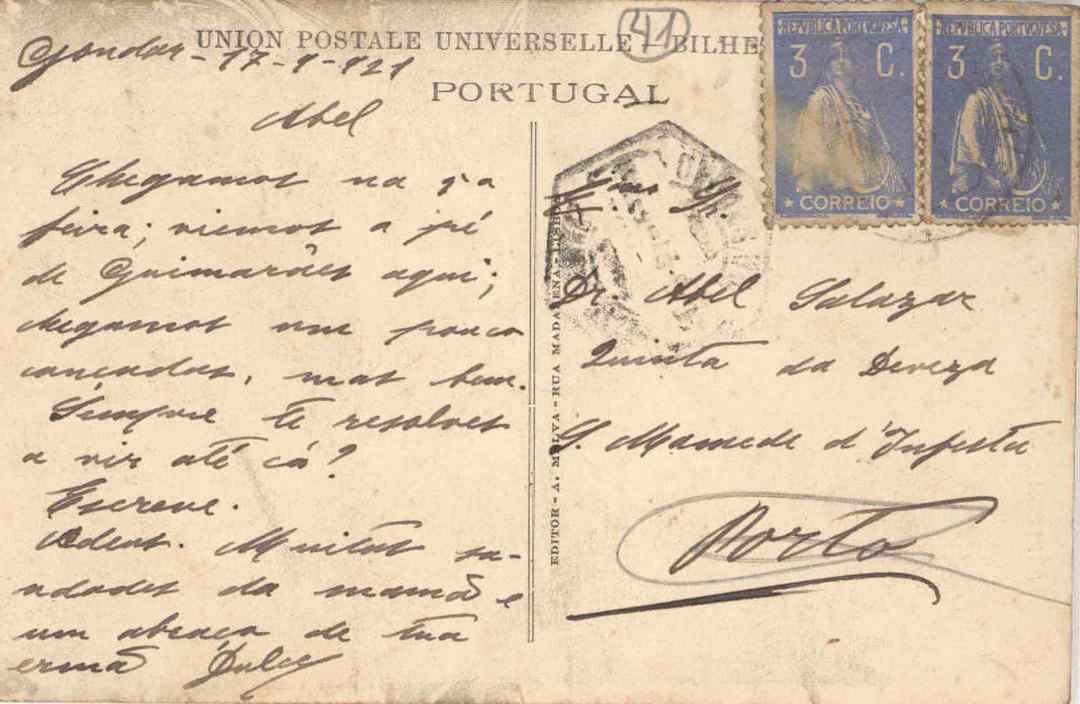 41
UNION POSTALE UNIVERSELLE - BILHE
PORTUGAL
Gondar - 17-9-921
Abel
Chegamos na 5a
feira; viemos a pé
de Guimarães aqui;
chegamos um pouco
cançadas, mas bem.
Sempre te resolves
a vir até cá?
Escreve.
Adeus. Muitas sau-
dades da mamã e
um abraço de tua
ermã Dulce
REPUBLICA PORTUGUESA
3 C.
CORREIO
REPUBLICA PORTUGUESA
3 C.
CORREIO
Exmo Sr.
Dr. Abel Salazar
Quinta da Deveza
S. Mamede d'Infesta
Porto
EDITOR - A. MALVA - RUA MADALENA